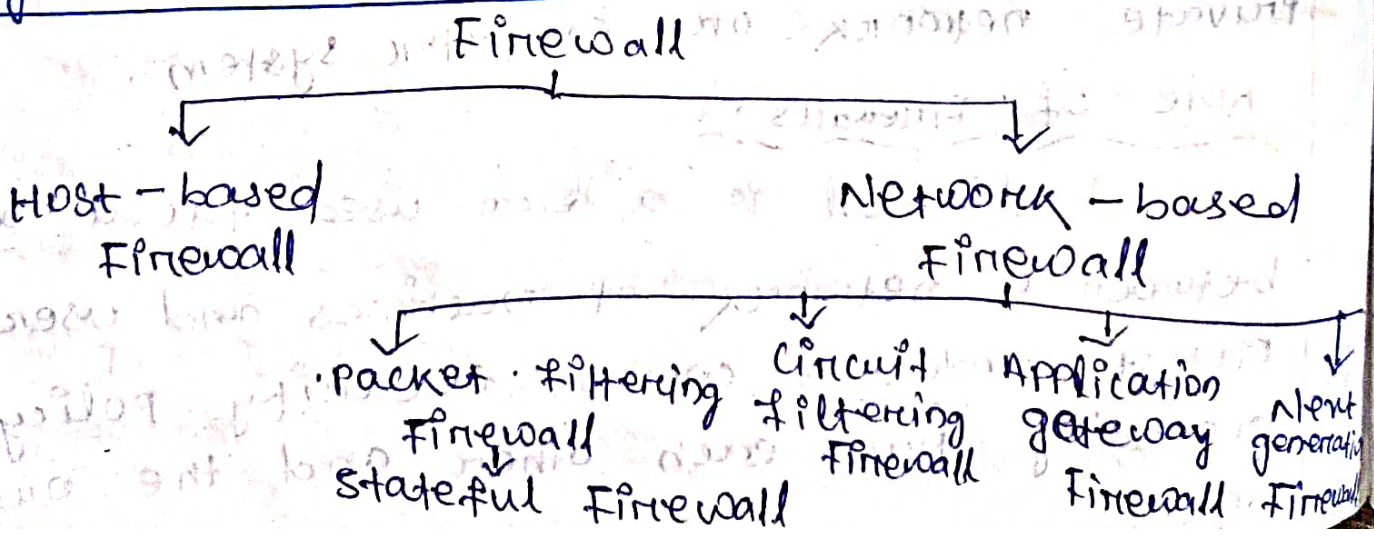 Firewall
Host - based
Firewall
Network - based
Firewall
Packet filtering
Firewall
Stateful Firewall
Circuit
filtering
Firewall
Application
gateway
Firewall
Next
generation
Firewall